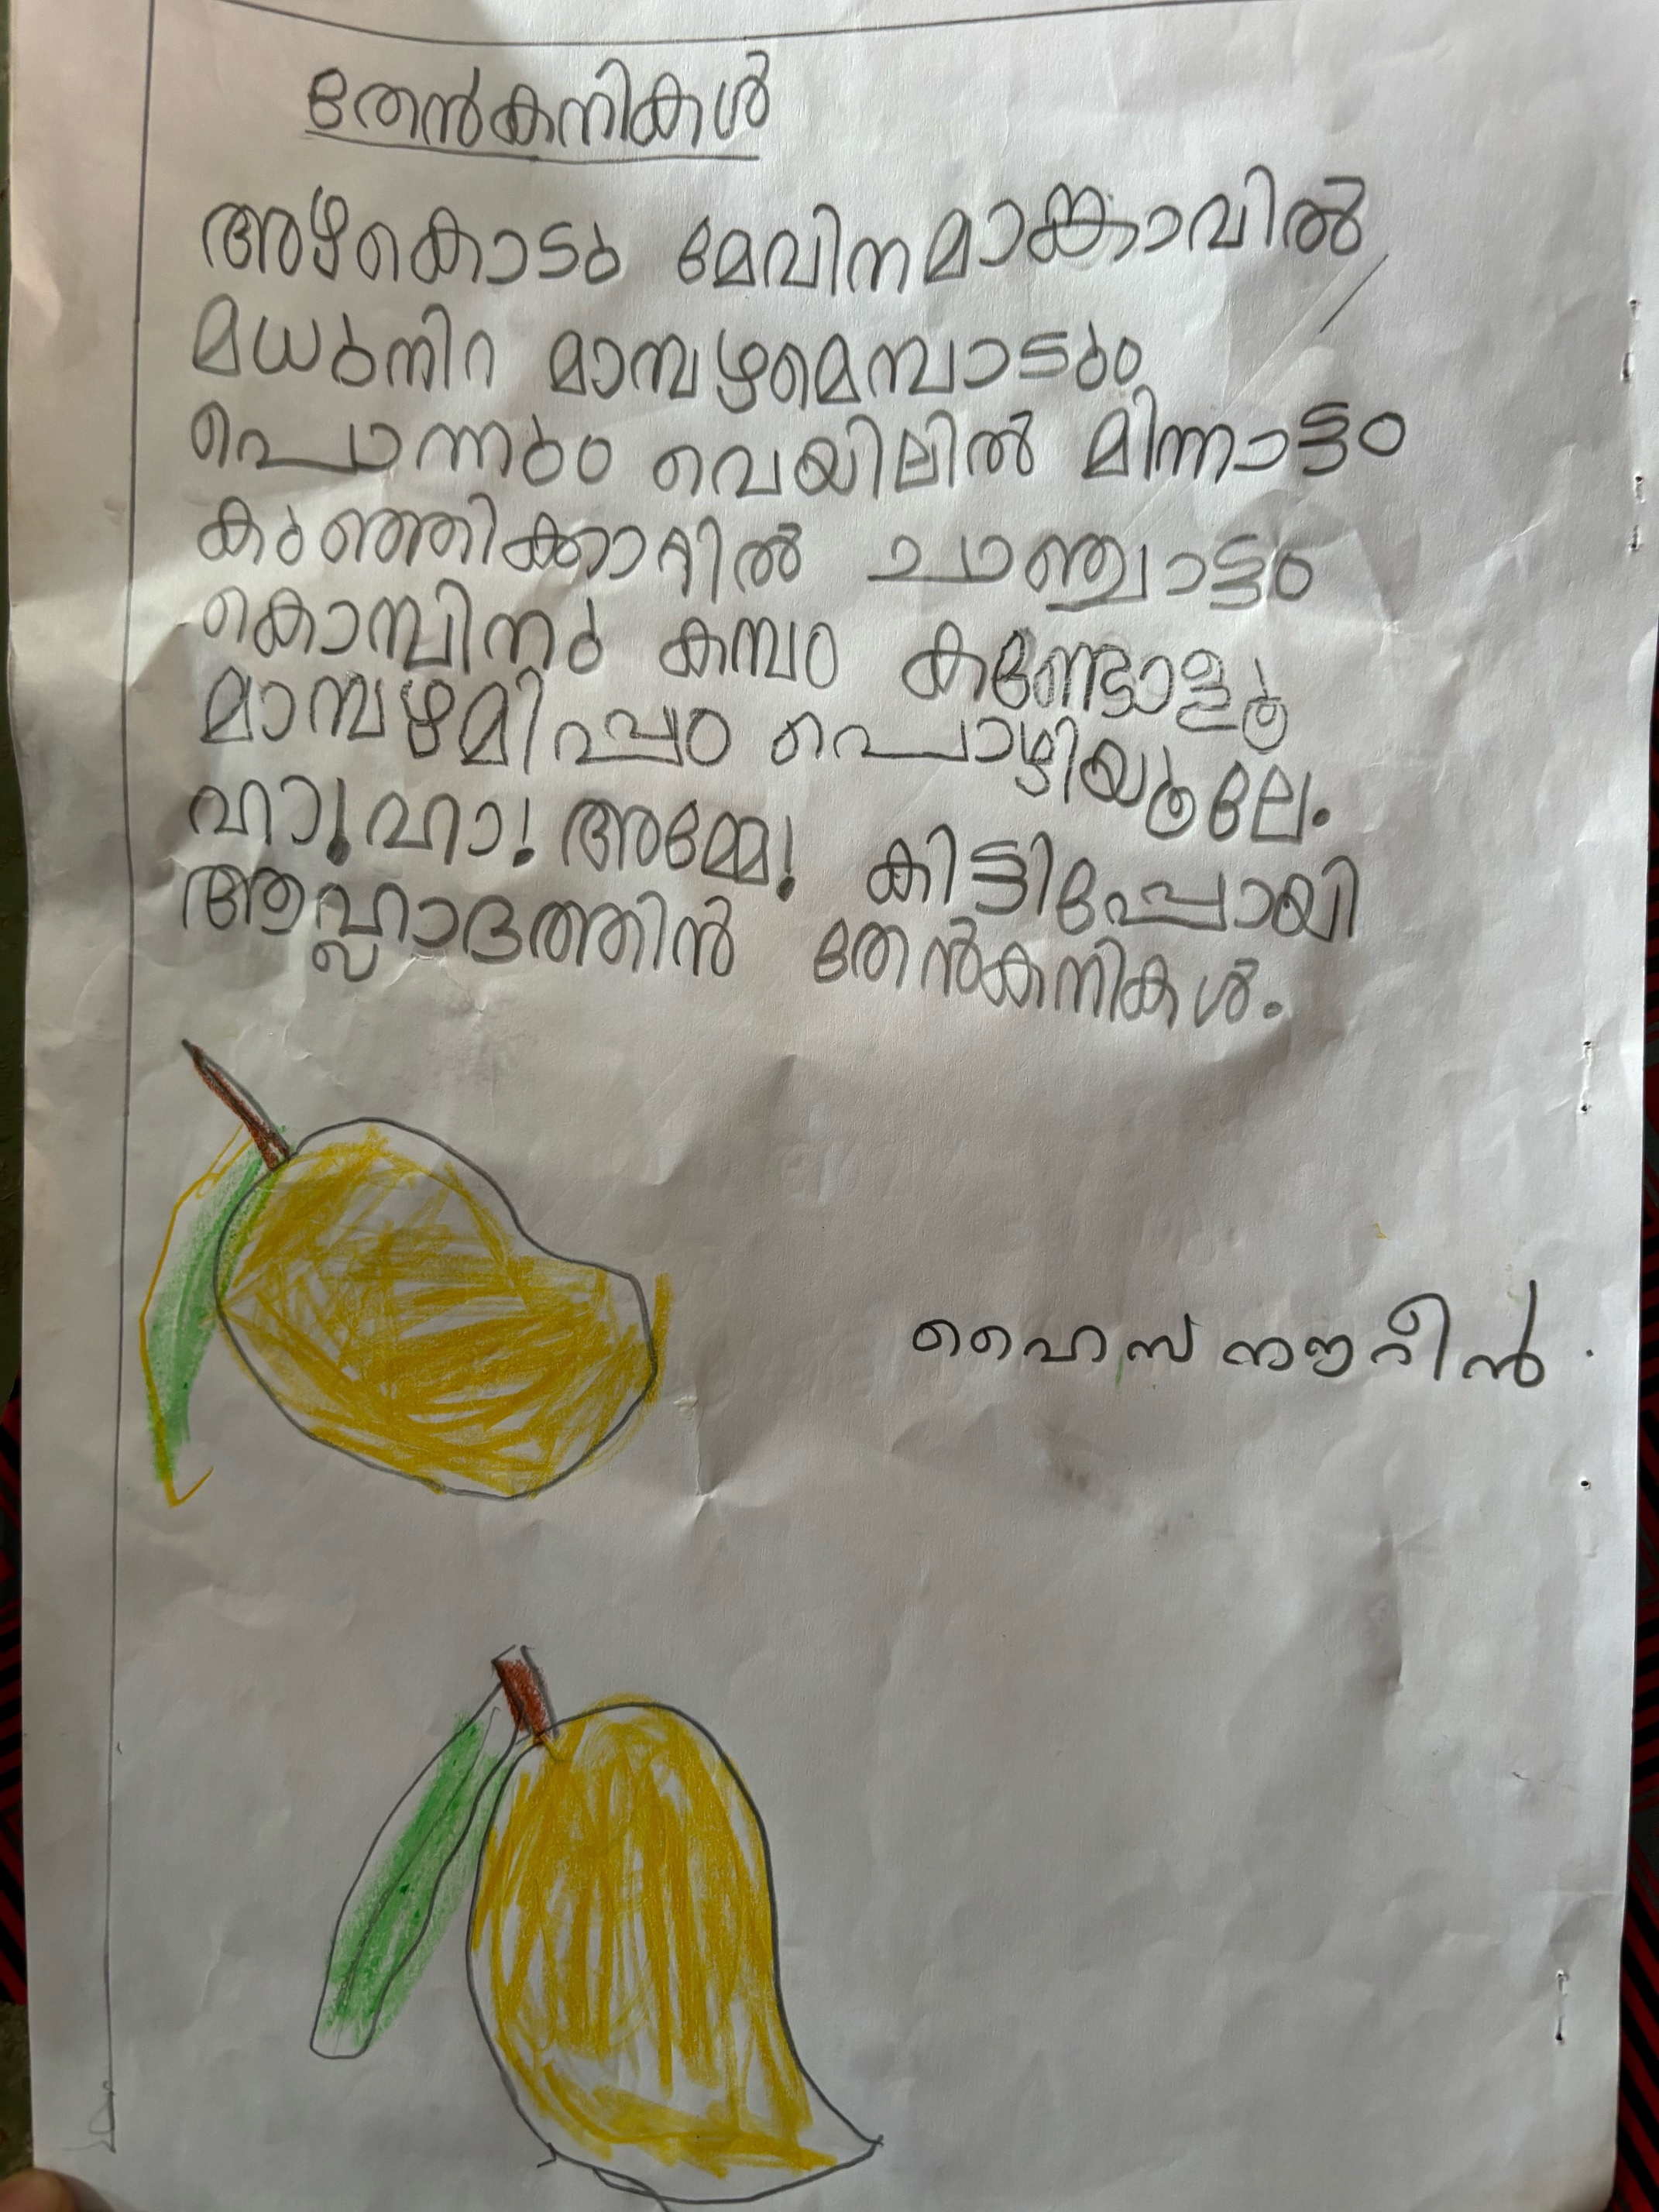 തേൻകനികൾ
അഴകൊടു മേവിന മാങ്കാവിൽ
മധുനിറ മാമ്പഴമെമ്പാടും
പൊന്നും വെയിലിൽ മിന്നാട്ടം
കുഞ്ഞിക്കാറ്റിൽ ചാഞ്ചാട്ടം
കൊമ്പിനു കമ്പം കണ്ടോളൂ
മാമ്പഴമിപ്പം പൊഴിയൂലേ.
ഹാ! ഹാ! അമ്മേ! കിട്ടിപ്പോയി
ആഹ്ലാദത്തിൻ തേൻകനികൾ.
ഹൈസ നൗറീൻ.